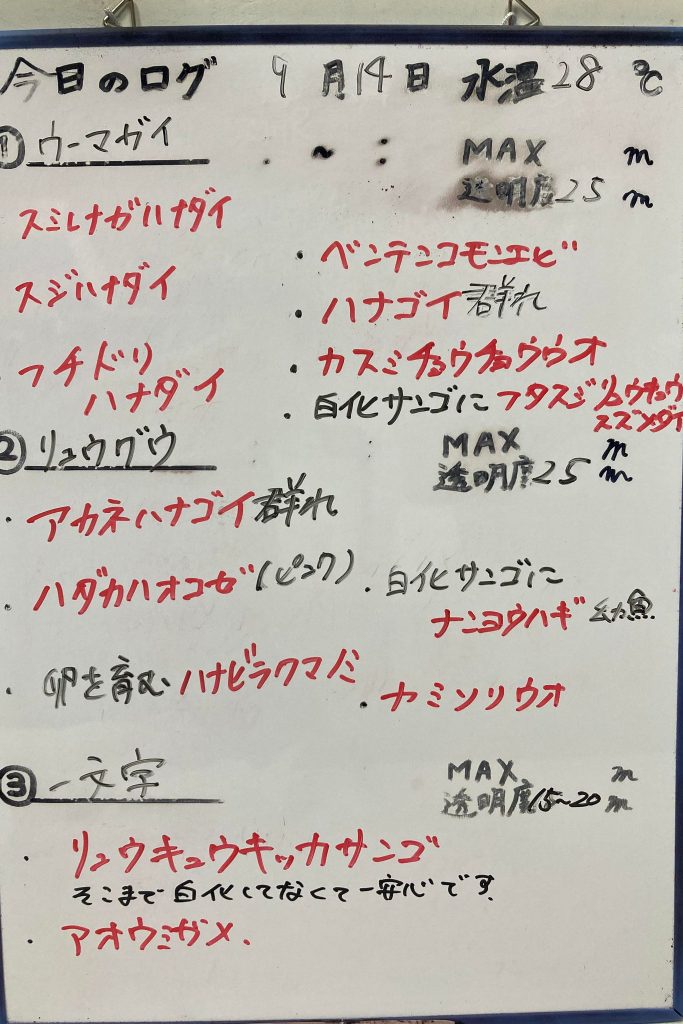 今日のログ 9月14日 水温28℃
① ウーマガイ . ~ : MAX m
透明度25m
スミレナガハナダイ
スジハナダイ
フチドリ
ハナダイ
・ベンテンコモンエビ
・ハナゴイ群れ
・カスミチョウチョウウオ
・白化サンゴにフタスジリュウキュウ
スズメダイ
② リュウグウ MAX m
透明度25m
・アカネハナゴイ群れ
・ハダカハオコゼ(ピンク)
・卵を育むハナビラクマノミ
・白化サンゴに
ナンヨウハギ幼魚
・カミソリウオ
③ 一文字 MAX m
透明度15~20m
・リュウキュウキッカサンゴ
そこまで白化してなくて一安心です
・アオウミガメ.